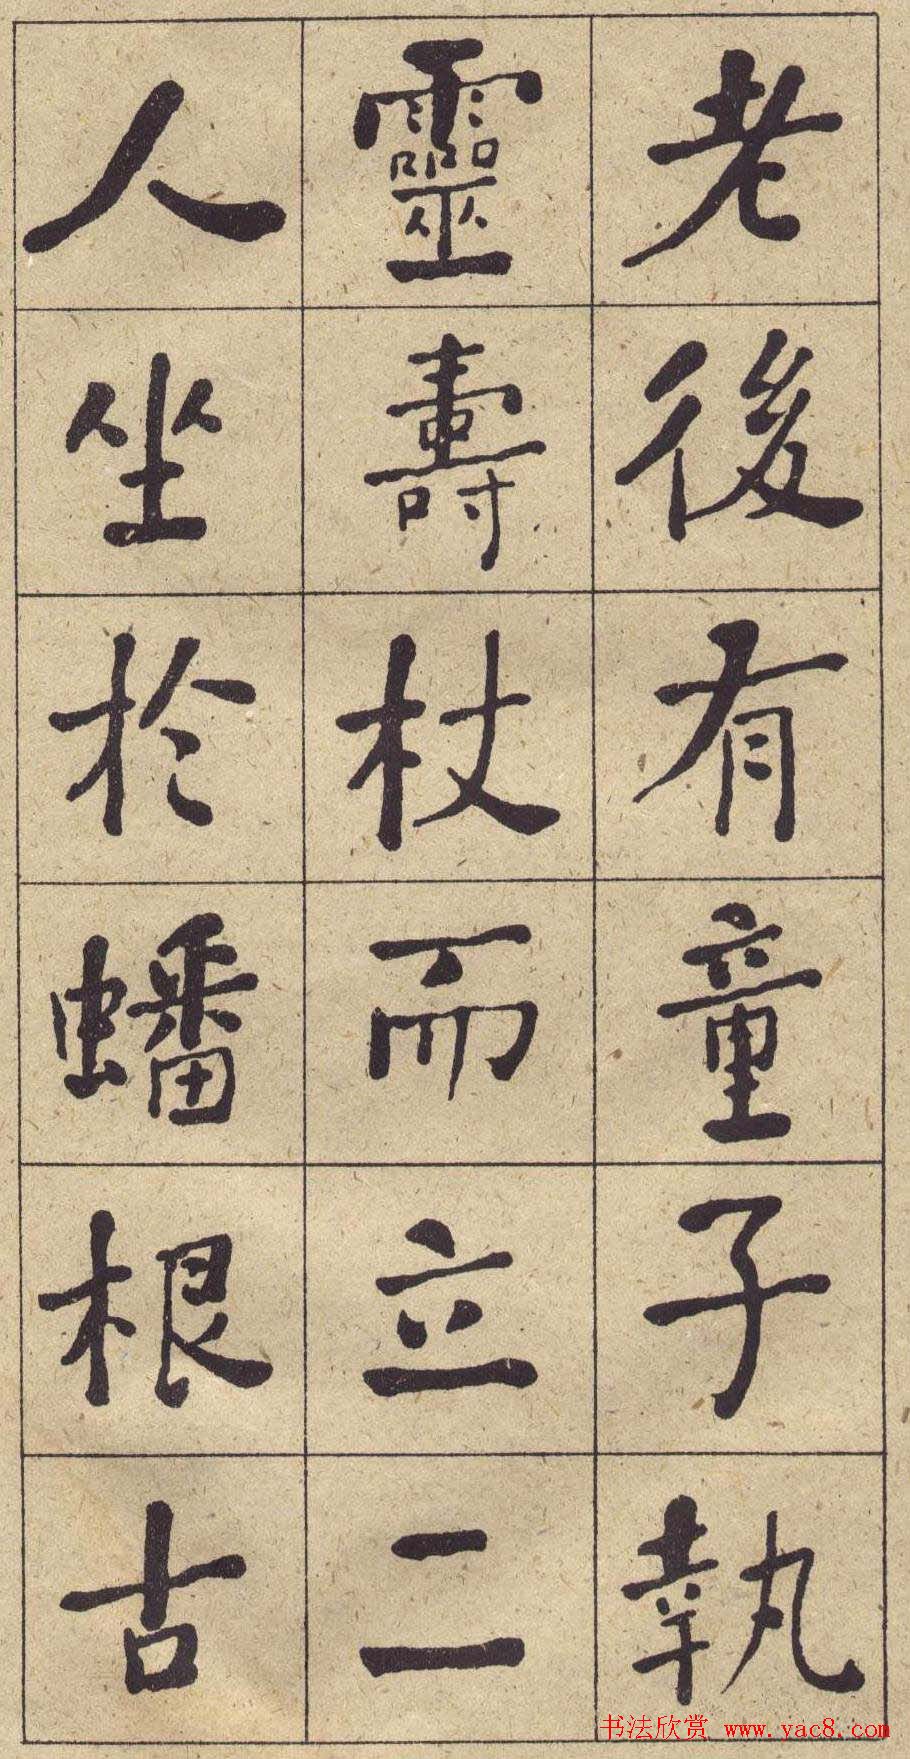 老後有童子執
靈壽杖而立二
人坐於蟠根古
书法欣赏 www.yac8.com